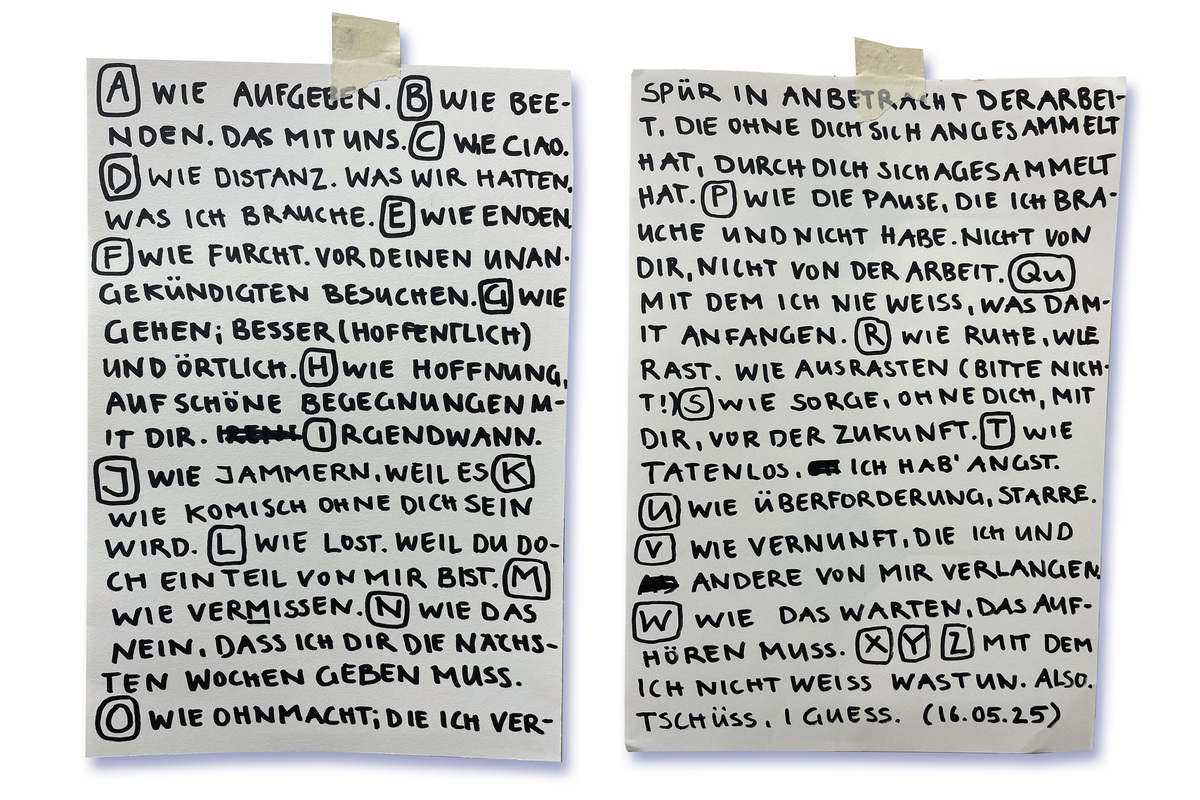 A WIE AUFGEBEN. B WIE BEE-
NDEN. DAS MIT UNS. C WIE CIAO.
D WIE DISTANZ. WAS WIR HATTEN,
WAS ICH BRAUCHE. E WIE ENDEN.
F WIE FURCHT. VOR DEINEN UNAN-
GEKÜNDIGTEN BESUCHEN. G WIE
GEHEN; BESSER (HOFFENTLICH)
UND ÖRTLICH. H WIE HOFFNUNG,
AUF SCHÖNE BEGEGNUNGEN M-
IT DIR. I RGENDWANN.
J WIE JAMMERN, WEIL ES K
WIE KOMISCH OHNE DICH SEIN
WIRD. L WIE LOST. WEIL DU DO-
CH EIN TEIL VON MIR BIST. M
WIE VERMISSEN. N WIE DAS
NEIN, DASS ICH DIR DIE NÄCHS-
TEN WOCHEN GEBEN MUSS.
O WIE OHNMACHT; DIE ICH VER-
SPÜR IN ANBETRACHT DER ARBEI-
T, DIE OHNE DICH SICH ANGESAMMELT
HAT, DURCH DICH SICH AGESAMMELT
HAT. P WIE DIE PAUSE, DIE ICH BRA-
UCHE UND NICHT HABE. NICHT VON
DIR, NICHT VON DER ARBEIT. Qu
MIT DEM ICH NIE WEISS, WAS DAM-
IT ANFANGEN. R WIE RUHE, WIE
RAST. WIE AUSRASTEN (BITTE NICH-
T!) S WIE SORGE, OHNE DICH, MIT
DIR, VOR DER ZUKUNFT. T WIE
TATENLOS. ICH HAB' ANGST.
U WIE ÜBERFORDERUNG, STARRE.
V WIE VERNUNFT, DIE ICH UND
ANDERE VON MIR VERLANGEN.
W WIE DAS WARTEN, DAS AUF-
HÖREN MUSS. X Y Z MIT DEM
ICH NICHT WEISS WAS TUN. ALSO.
TSCHÜSS, I GUESS. (16.05.25)